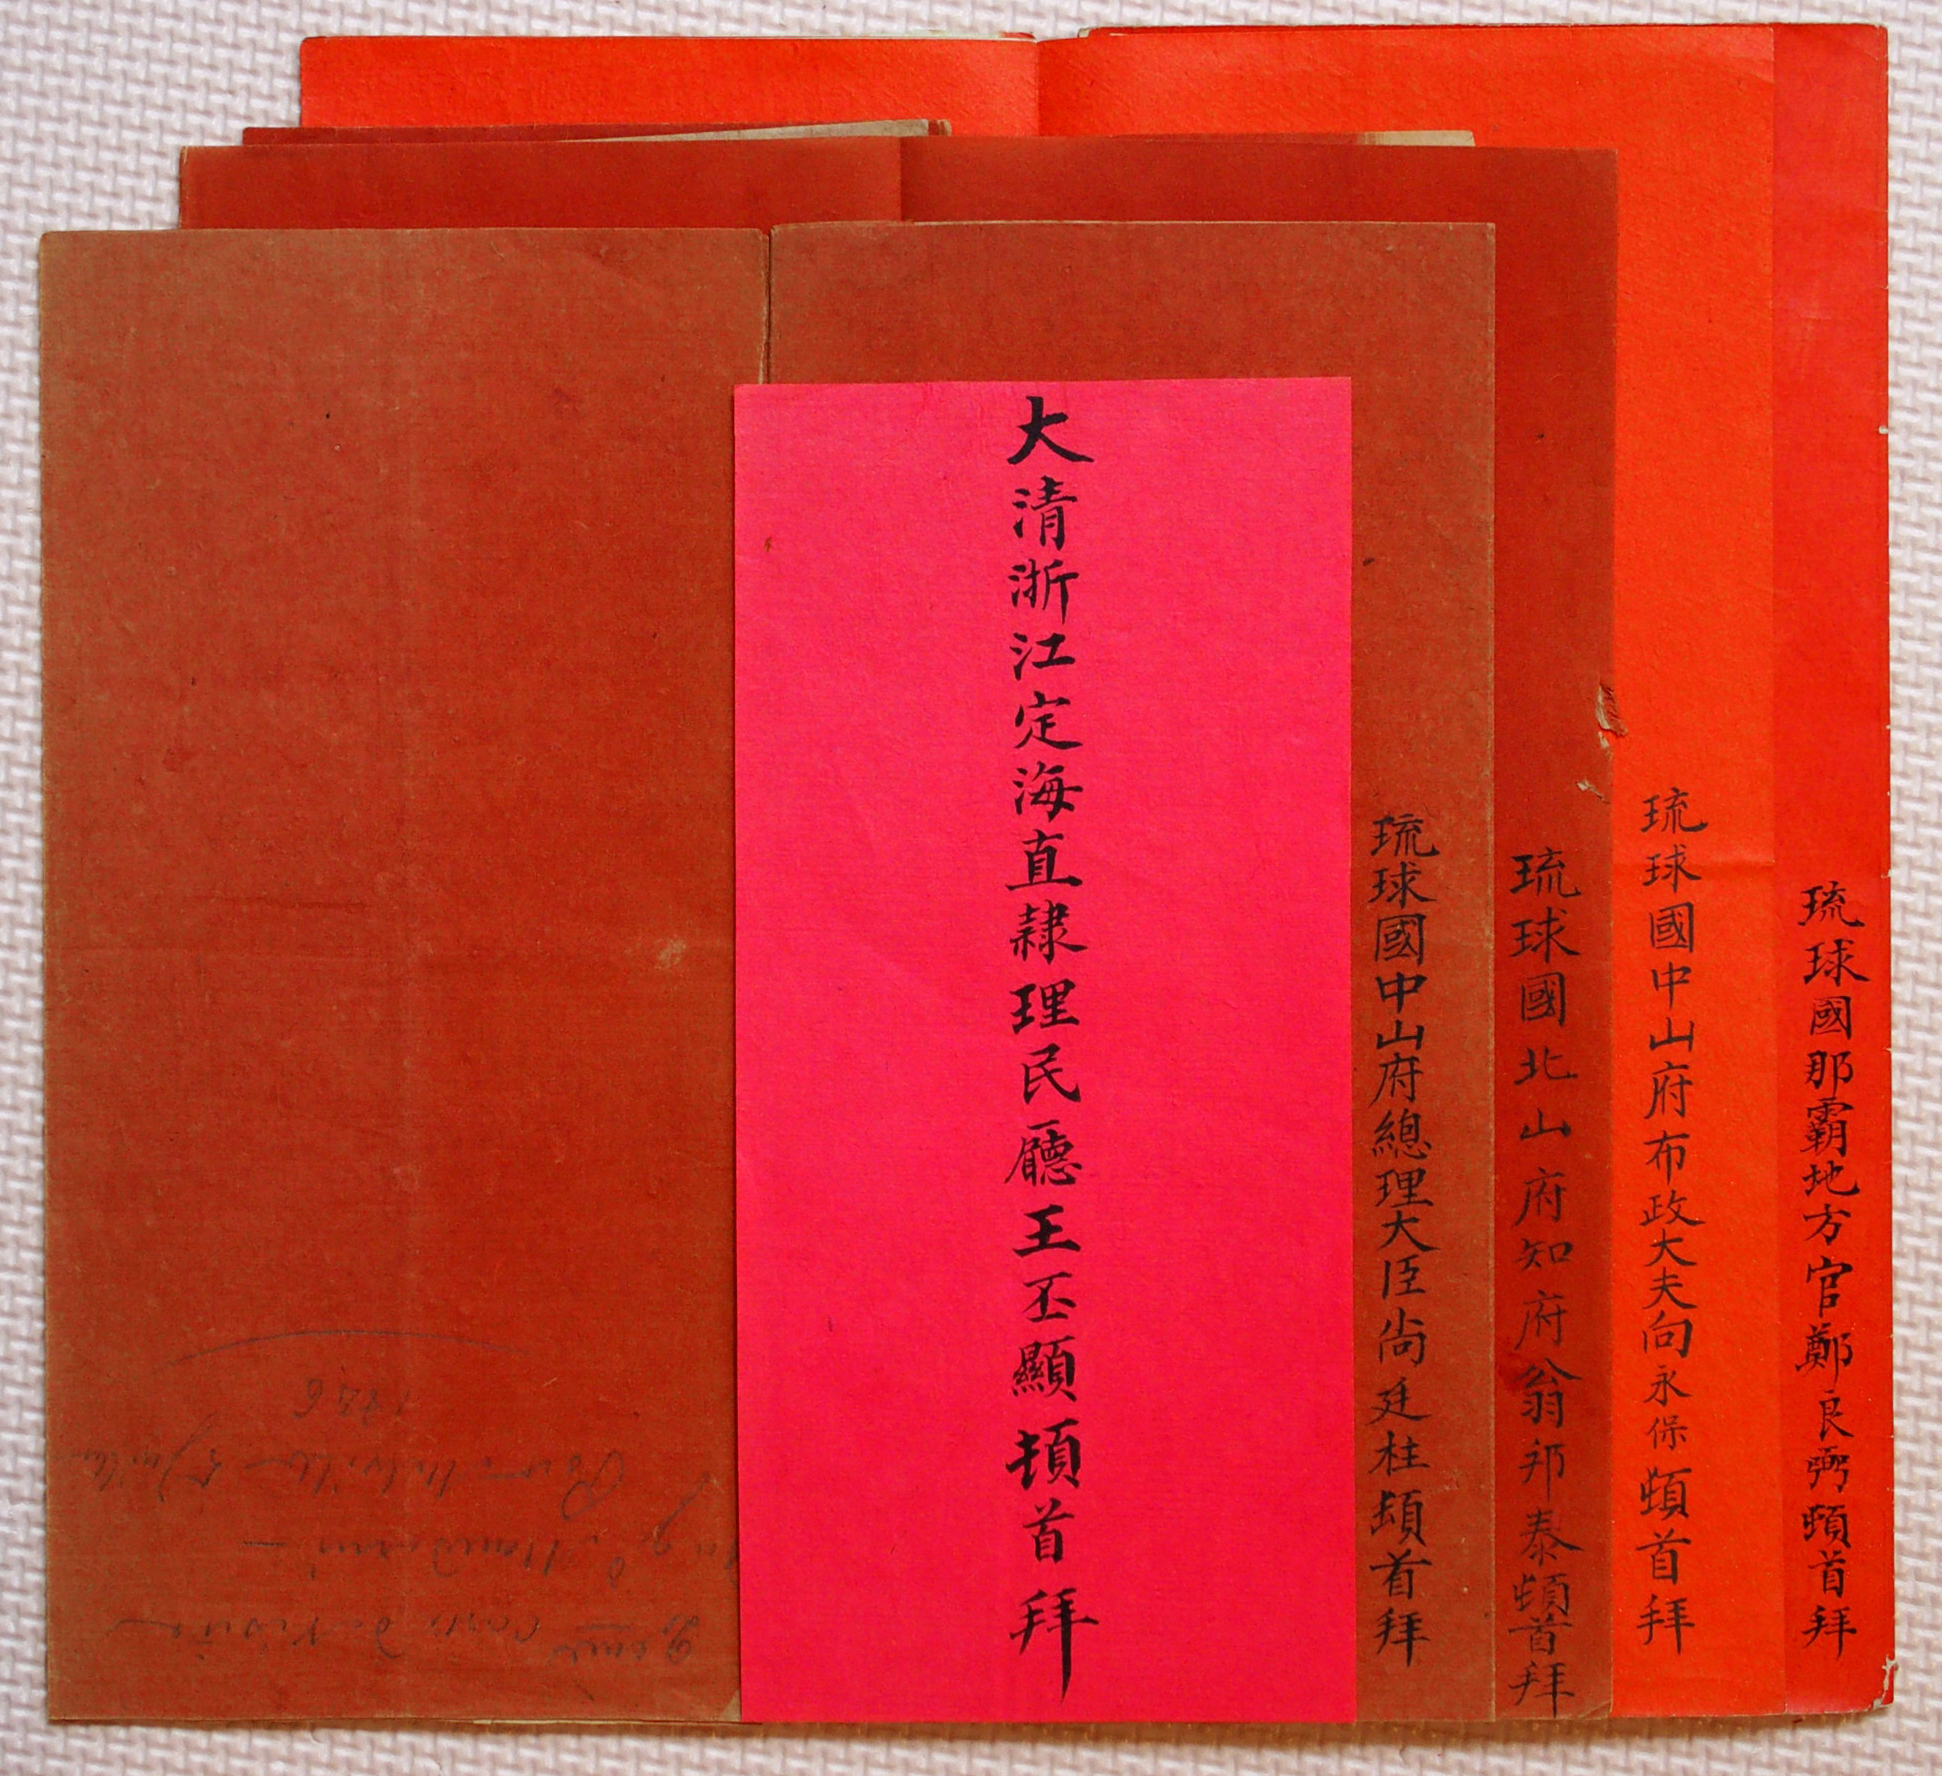 琉球國那霸地方官鄭良弼頓首拜
琉球國中山府布政大夫向永保頓首拜
琉球國北山府知府翁邦泰頓首拜
琉球國中山府總理大臣尚廷柱頓首拜
大清浙江定海直隸理民廳王丕顯頓首拜
1846